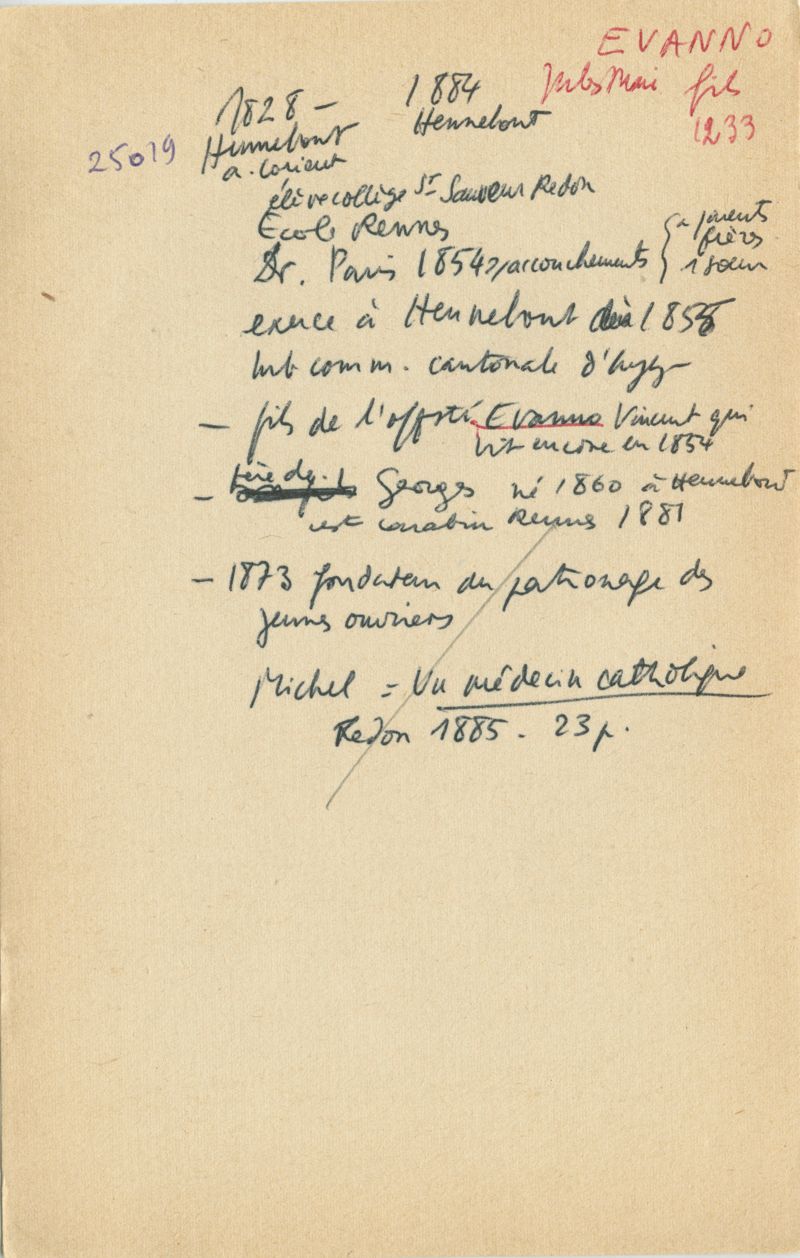 EVANNO
Jules Marie fils
1233
1828 - 1884
Hennebont Hennebont
a. Lorient
25019
élève collège St Sauveur Redon
Ecole Rennes
Dr. Paris 1854 accouchements
{ parents
frères
1 soeur
exerce à Hennebont dès 1855
mb comm. cantonale d'hyg
- fils de l'offsté Evanno Vincent qui
vit encore en 1854
- père de Georges né 1860 à Hennebont
est carabin Rennes 1881
- 1873 fondateur du patronage des
jeunes ouvriers
Michel = Un médecin catholique
Redon 1885 - 23 p.